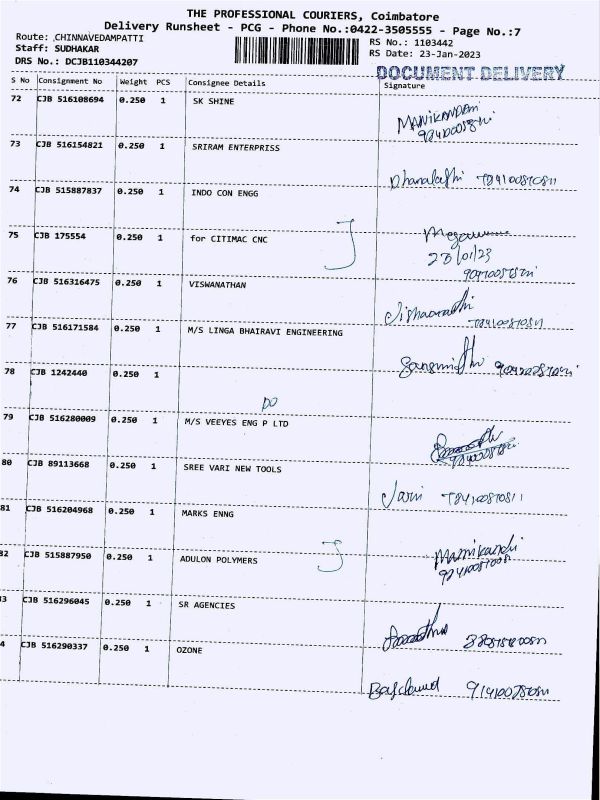 THE PROFESSIONAL COURIERS, Coimbatore
Delivery Runsheet - PCG - Phone No.:0422-3505555 - Page No.:7
Route: .CHINNAVEDAMPATTI
RS No.: 1103442
Staff: SUDHAKAR
RS Date: 23-Jan-2023
DRS No.: DCJB110344207
DOCUMENT DELIVERY
S No Consignment No Weight PCS Consignee Details Signature
72 CJB 516108694 0.250 1 SK SHINE
MANIKANDAN
73 CJB 516154821 0.250 1 SRIRAM ENTERPRISS
74 CJB 515887837 0.250 1 INDO CON ENGG
75 CJB 175554 0.250 1 for CITIMAC CNC
23/01/23
76 CJB 516316475 0.250 1 VISWANATHAN
77 CJB 516171584 0.250 1 M/S LINGA BHAIRAVI ENGINEERING
78 CJB 1242440 0.250 1
DO
79 CJB 516280009 0.250 1 M/S VEEYES ENG P LTD
80 CJB 89113668 0.250 1 SREE VARI NEW TOOLS
81 CJB 516204968 0.250 1 MARKS ENNG
82 CJB 515887950 0.250 1 ADULON POLYMERS
3 CJB 516296045 0.250 1 SR AGENCIES
4 CJB 516290337 0.250 1 OZONE